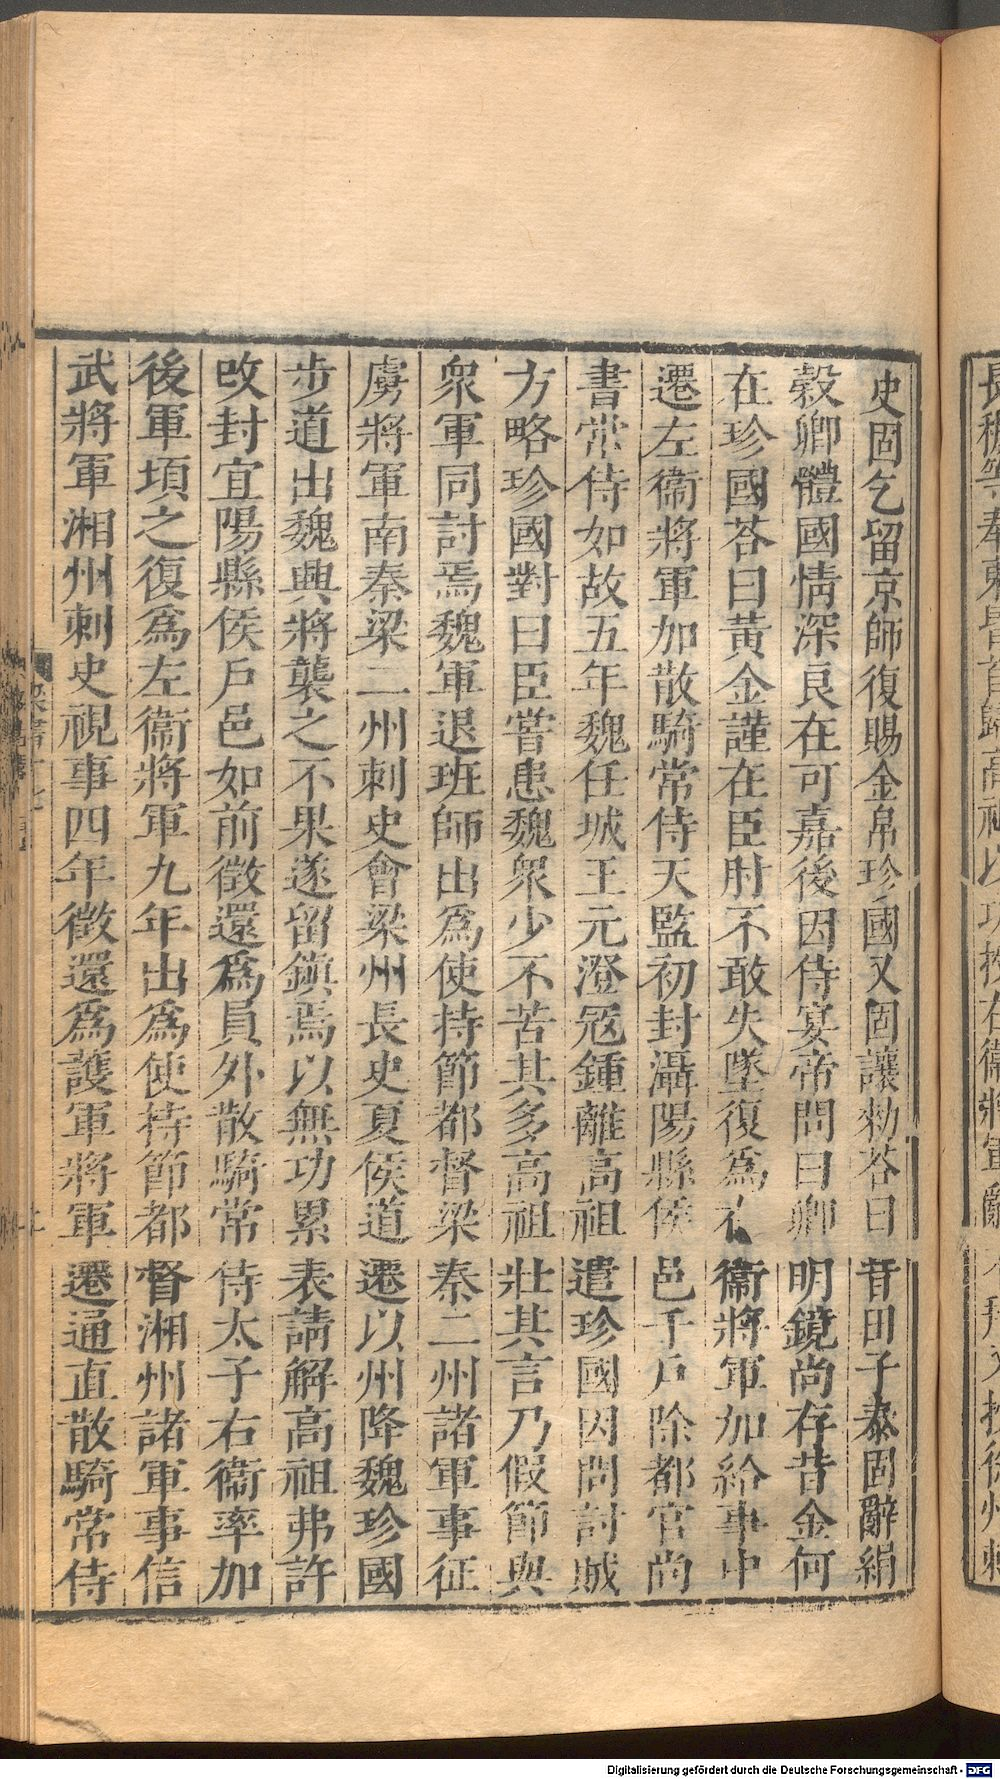 史固乞留京師復賜金帛珍國又固讓勑荅曰昔田子泰固辭絹
榖卿體國情深良在可嘉後因侍宴帝問曰卿明鏡尚存昔金何
在珍國荅曰黃金謹在臣肘不敢失墜復為右衞將軍加給事中
遷左衞將軍加散騎常侍天監初封灄陽縣侯邑千戶除都官尚
書常侍如故五年魏任城王元澄宼鍾離高祖遣珍國因問討賊
方略珍國對曰臣嘗患魏衆少不苦其多高祖壯其言乃假節與
衆軍同討焉魏軍退班師出為使持節都督梁秦二州諸軍事征
虜將軍南秦梁二州刺史會梁州長史夏侯道遷以州降魏珍國
步道出魏興將襲之不果遂留鎮焉以無功累表請解高祖弗許
改封宜陽縣侯戶邑如前徵還爲員外散騎常侍太子右衞率加
後軍頃之復爲左衞將軍九年出爲使持節都督湘州諸軍事信
武將軍湘州刺史視事四年徵還爲護軍將軍遷通直散騎常侍
Digitalisierung gefördert durch die Deutsche Forschungsgemeinschaft - DFG